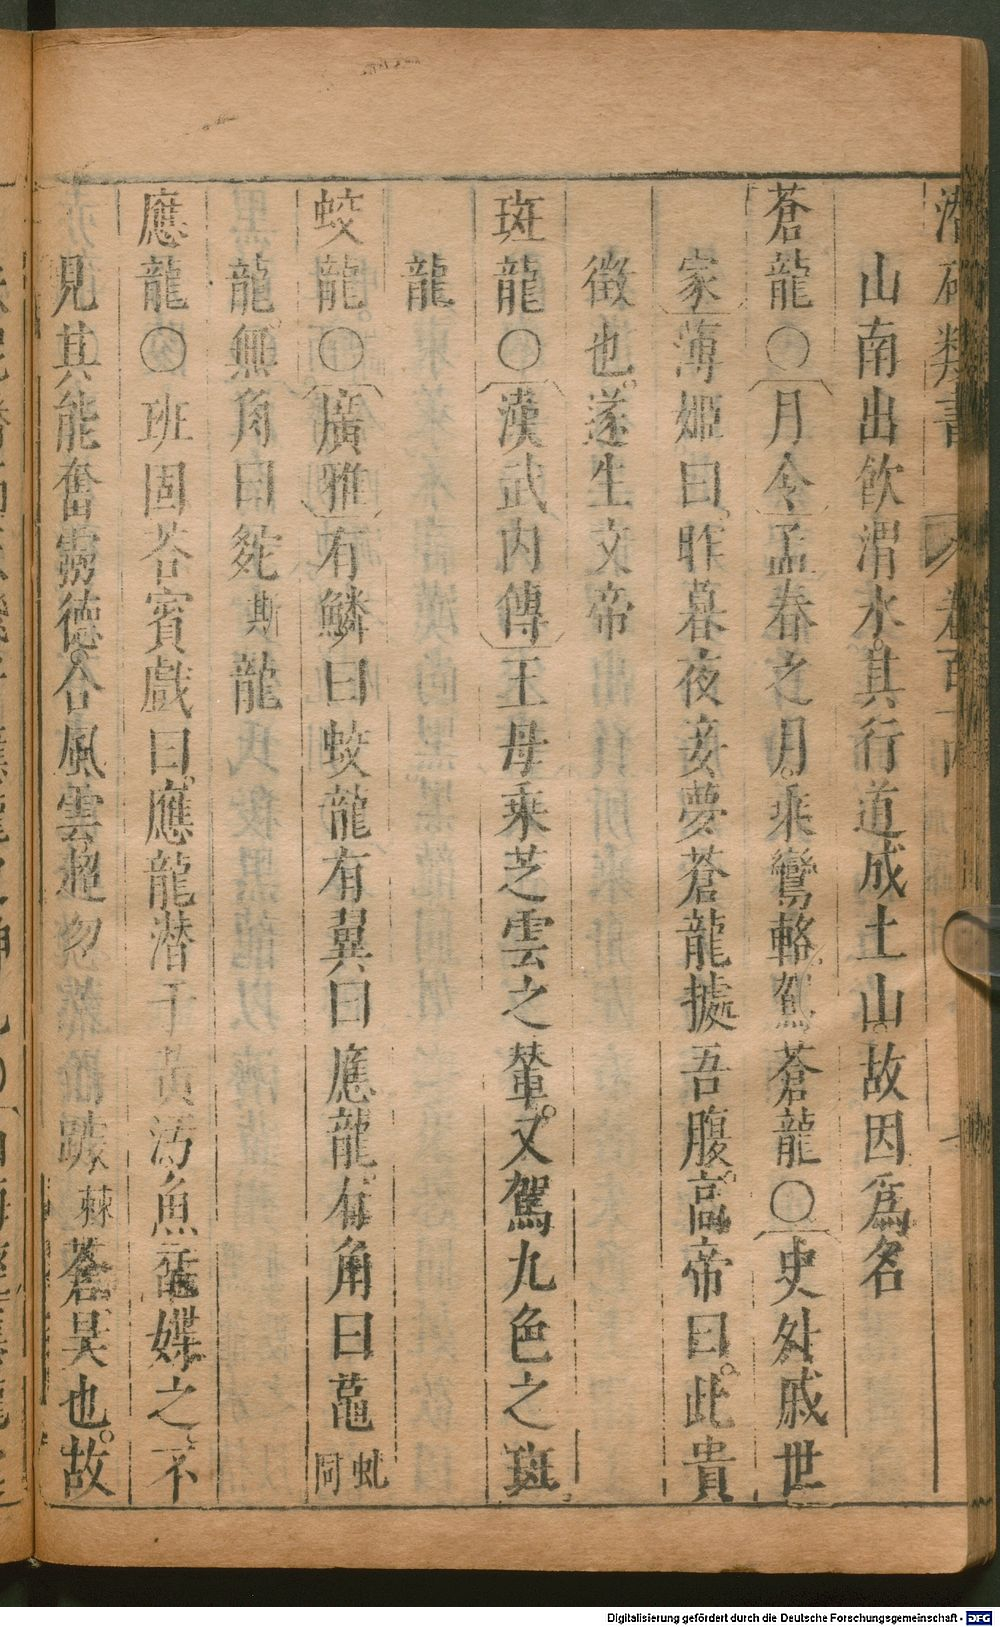 潛確類書 卷百十
山南出飲渭水其行道成土山故因爲名
蒼龍○月令孟春之月乘鸞輅駕蒼龍○史外戚世
家薄姬曰昨暮夜妾夢蒼龍據吾腹高帝曰此貴
徵也遂生文帝
斑龍○漢武內傳王母乘芝雲之輦又駕九色之斑
龍
蛟龍○廣雅有鱗曰蛟龍有翼曰應龍有角曰䖝虬同
龍無角曰䖤斯龍
應龍○班固荅賓戲曰應龍潛于黃汚魚黿媟之不
見其能奮靈德合風雲超忽荒而躆蒼昊也故
Digitalisierung gefördert durch die Deutsche Forschungsgemeinschaft - DFG